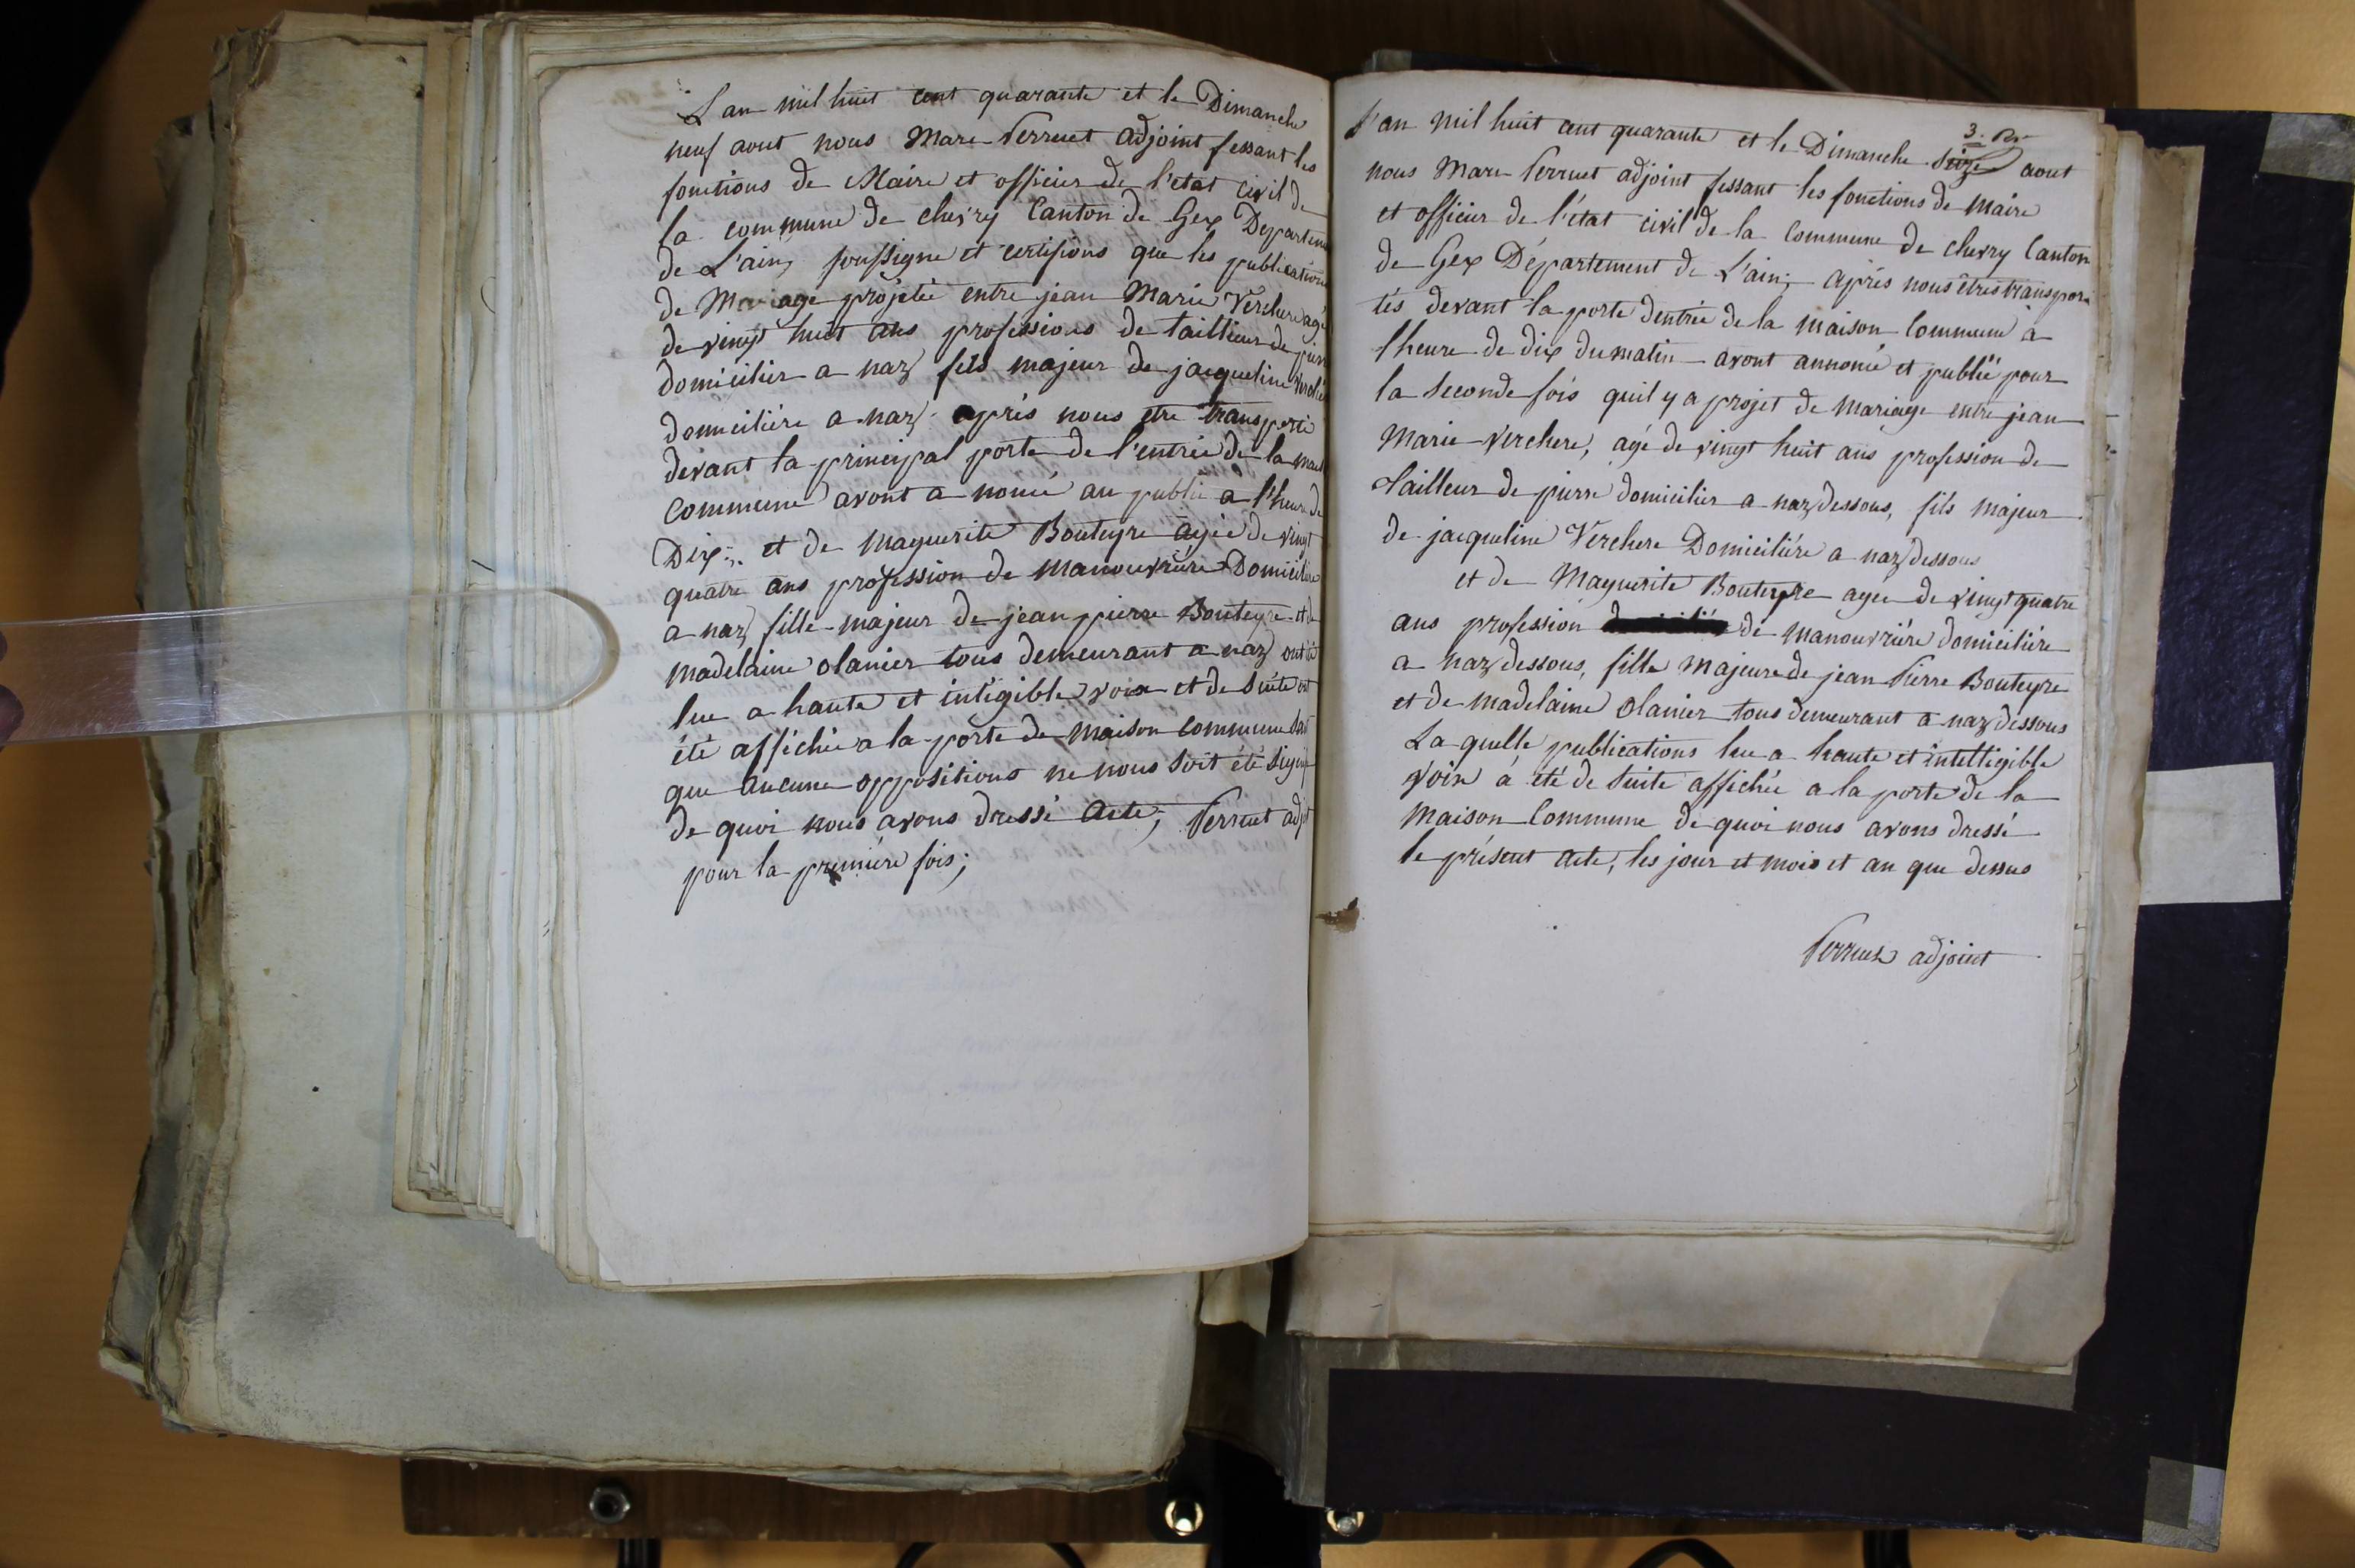 L'an mil huit cent quarante et le Dimanche
neuf aout nous Marc Perruet adjoint fessant les
fonctions de Maire et officier de l'etat civil de
la commune de chevry Canton de Gex Departem
de L'ain, soussigné et certifions que les publications
de Mariage projetée entre jean Marie Verchere agé
de vingt huit ans professions de tailleur de pierre
domicilier a naz fils majeur de jacqueline Verchere
domicilière a naz après nous etre transporté
devant la principal porte de l'entrée de la mais
commune avont a noncé au public a l'heure de
Dix. et de Maguerite Bouteyre agée de vingt
quatre ans profession de manouvrière Domicilière
a naz fille majeur de jean pierre Bouteyre et de
madelaine olanier tous demeurant a naz ont été
lue a haute et inteligible voix et de suite ont
été affichée a la porte de maison commune sait
que aucune oppositions ne nous soit été signif
de quoi nous avons dressé acte, Perruet adjt
pour la première fois;
3.
L'an mil huit cent quarante et le Dimanche seize aout
nous Marc Perruet adjoint fessant les fonctions de maire
et officier de l'état civil de la commune de chevry Canton
de Gex Département de L'ain; après nous êtres transpor
tés devant la porte dentrée de la maison commune a
lheure de dix du matin avont annoncé et publié pour
la seconde fois quil y a projet de mariage entre jean
Marie Verchere, agé de vingt huit ans profession de
tailleur de pierre domicilier a naz dessous, fils majeur
de jacqueline Verchere Domicilière a naz dessous
et de Maguerite Bouteyre agée de vingt quatre
ans profession de manouvrière domicilière
a naz dessous, fille majeure de jean Pierre Bouteyre
et de madelaine olanier tous demeurant a naz dessous
La quelle publications lue a haute et intelligible
voix a été de suite affichée a la porte de la
maison commune de quoi nous avons dressé
le présent acte, les jour et mois et an que dessus
Perruet adjoint